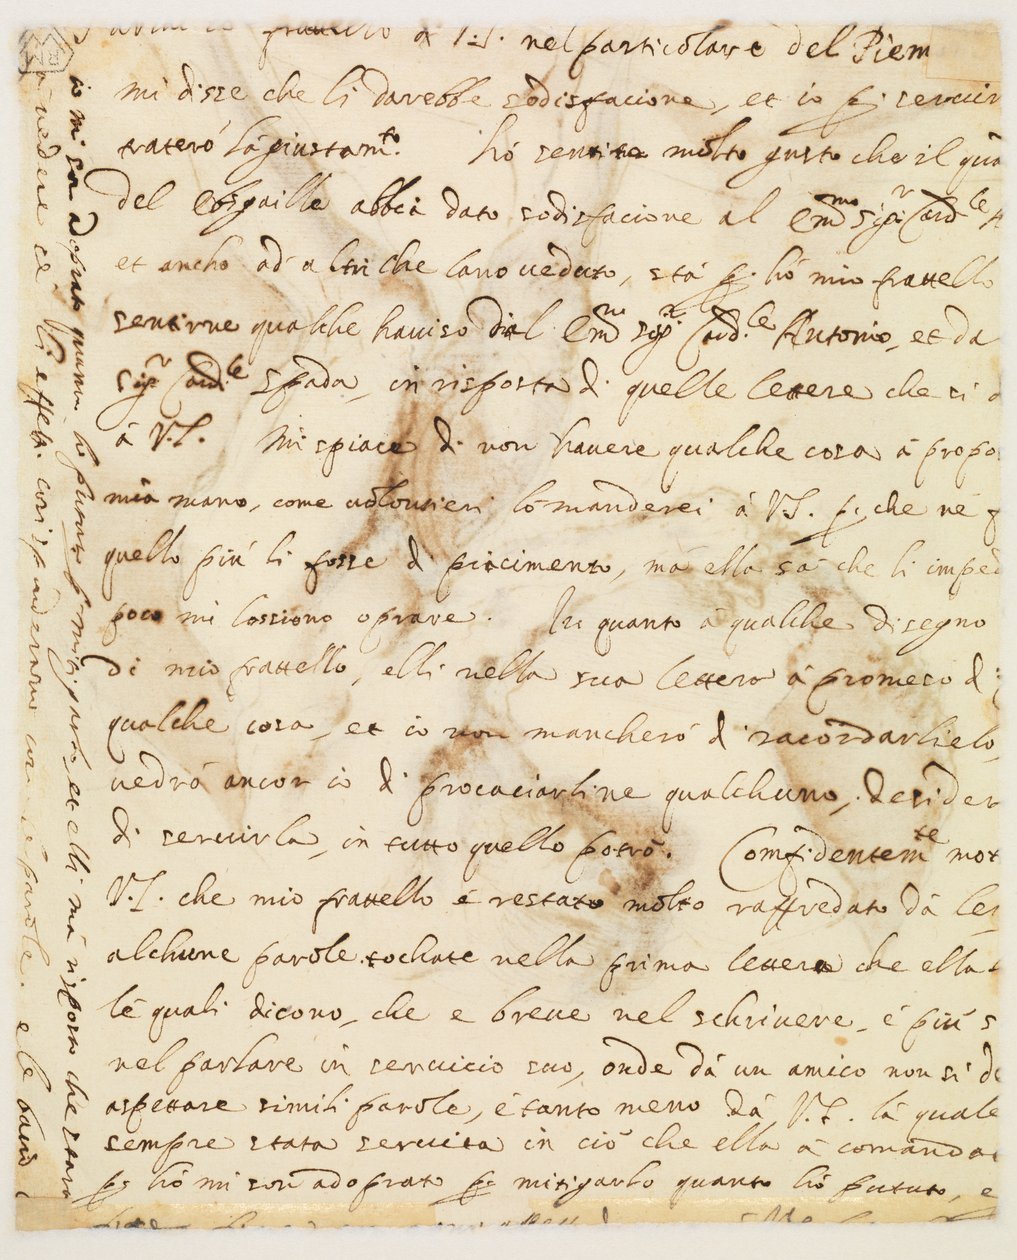 fratello di V.S. nel particolare del Piem
mi disse che li darebbe sodisfacione, et io p. servir
traterò l'agiustam.to hó sentito molto gusto che il qua
del abbia dato sodisfacione al Em.mo Sig.r Card.le
et ancho ad altri che lano veduto, stá p. hó mio frattello
sentirne qualche haviso dal Em.mo Sig.r Card.le Antonio, et da
Sig.r Card.le Spada, in risposta di quelle lettere che si
á V.S. Mi spiace di non havere qualche cosa á propo
mia mano, come volontieri lo manderei á V.S. p. che né
quello piú li fosse di piacimento, má ella sá che li imped
poco mi lassiono oprare. In quanto á qualche disegno
di mio frattello, elli nella sua lettera á promeso di
qualche cosa, et io non mancheró di racordarlielo,
vedró ancor io di procaciarline qualchuno, desider
di servirla, in tutto quello potró. Comfidentem.te mot
V.S. che mio frattello é restato molto raffredato dá le
alchune parole tochate nella prima lettera che ella
lé quali dicono, che e breve nel schrivere, é piú
nel parlare in servicio suo, onde dá un amico non si d
aspettare simili parole, é tanto meno dá V.S. lá quale
sempre stata servita in ció che ella á comanda
p. hó mi son adoprato p. mitigarlo quanto hó pututo, e
io mi son adoprato quanto ho pututo p. mitigarlo, et elli má risposto che stará
á vedere se li effetti corisponderano con le parole. e le bacio